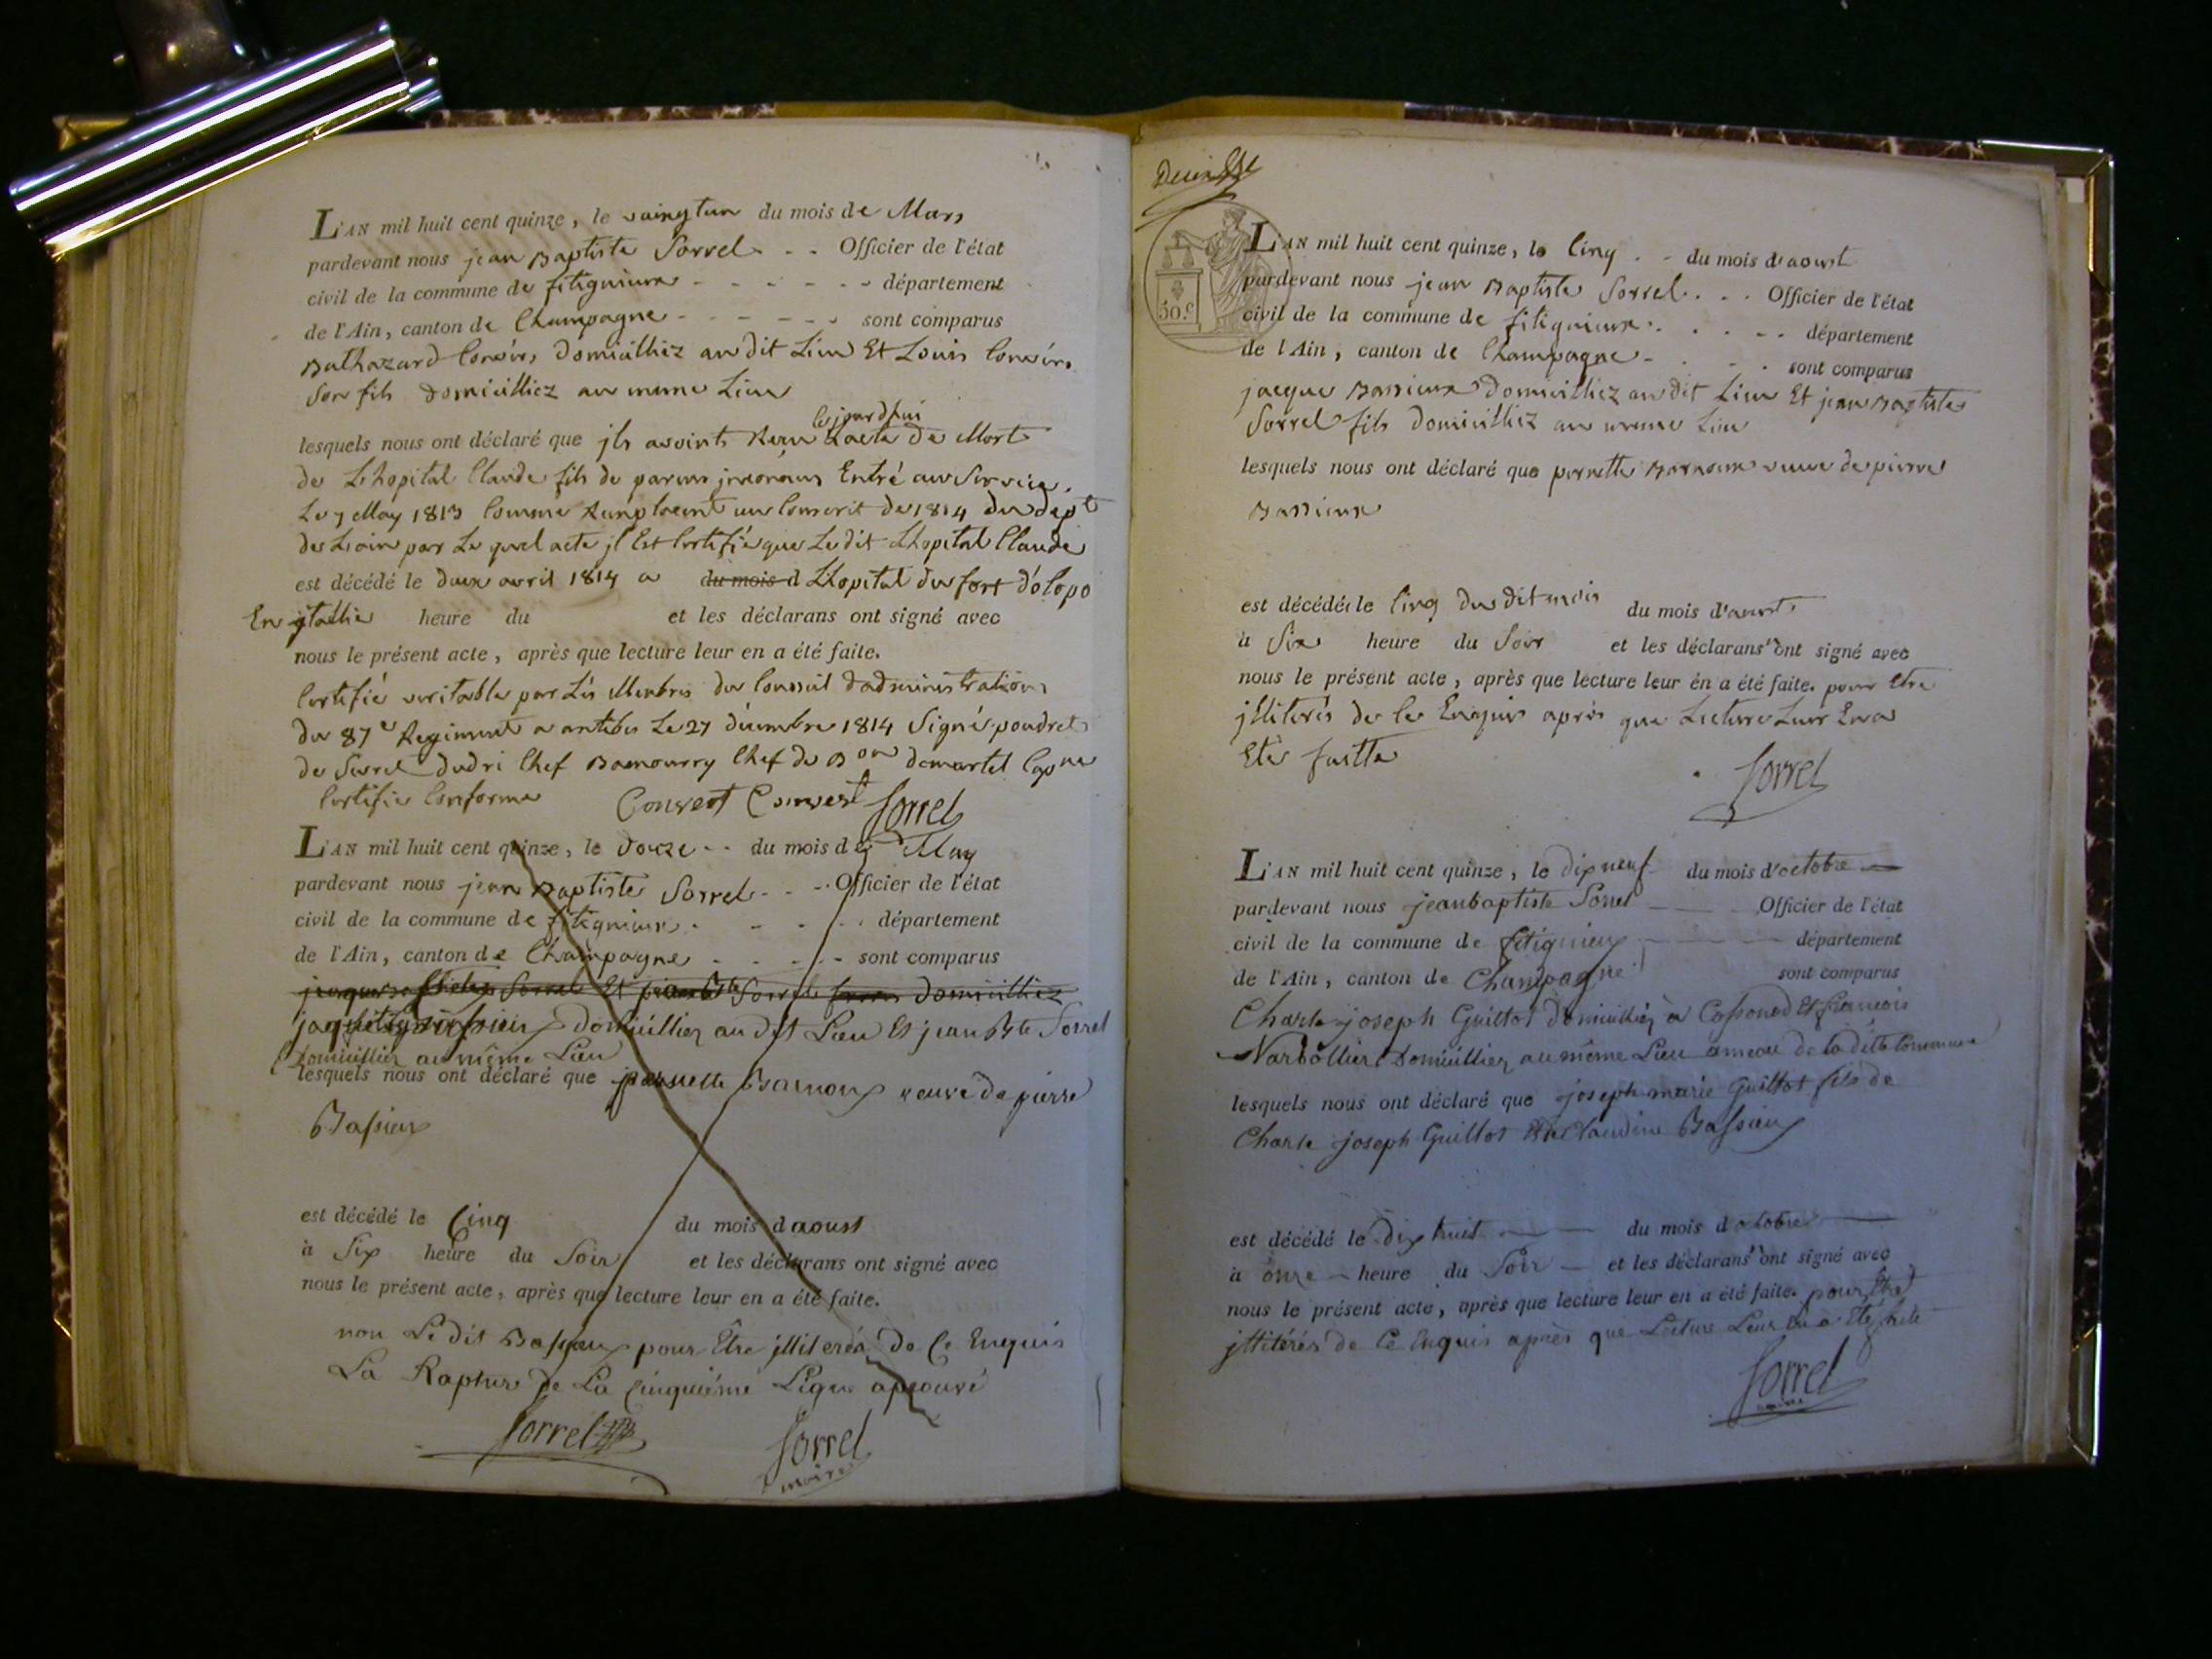 L'AN mil huit cent quinze, le vaingtun du mois de Mars
pardevant nous jean Baptiste Sorrel Officier de l'état
civil de la commune de fitignieux département
de l'Ain, canton de Champagne sont comparus
Balthazard domicilliez au dit Lieu Et Louis
Son fils domicilliez au meme Lieu
lesquels nous ont déclaré que jls avoints Recu ce jourd'hui Lacte de Mort
de Lhopital Claude fils de parens Entré au Service
Le 7 May 1813 Comme Ramplacent un Conscrit de 1814 du dept
de Lain par Le quel acte jl Est Certifié que Le dit Lhopital Claude
est décédé le deux avril 1814 a du mois d Lhopital du fort
En jtallie heure du et les déclarans ont signé avec
nous le présent acte, après que lecture leur en a été faite.
Certifié veritable par Lés Menbres du Conseil dadministration
du 87e Regiment a antibes Le 27 décembre 1814 Signé poudret
de Sevret Chef Chef de Bon
Certifié Conforme Convert Convert Sorrel
L'AN mil huit cent quinze, le douze du mois de May
pardevant nous jean Baptiste Sorrel Officier de l'état
civil de la commune de fitignieux département
de l'Ain, canton de Champagne sont comparus
Sorrel Et Sorrel domicilliez
domicillier au dit Lieu Et jean Bte Sorrel
Domicillier au même Lieu
lesquels nous ont déclaré que pernette Barnoux veuve de pierre
Bassieux
est décédé le Cinq du mois d aoust
à Six heure du Soir et les déclarans ont signé avec
nous le présent acte, après que lecture leur en a été faite.
non Le dit Bassieux pour Être jlliterés De Ce Enquis
La Rapture de La Cinquiéme Ligne aprouvé
Sorrel Sorrel
maire
50.c
L'AN mil huit cent quinze, le Cinq du mois d'aoust
pardevant nous jean Baptiste Sorrel Officier de l'état
civil de la commune de fitignieux département
de l'Ain, canton de Champagne sont comparus
jacque Bassieux domicilliez au dit Lieu Et jean Baptiste
Sorrel fils domicilliez au meme Lieu
lesquels nous ont déclaré que pernette Barnoux veuve de pierre
Bassieux
est décédée le Cinq du dit mois du mois d'aoust
à Six heure du Soir et les déclarans n'ont signé avec
nous le présent acte, après que lecture leur en a été faite. pour Etre
jlliterés de Ce Enquis aprés que Lecture Leur En a
Etés faitte
Sorrel
L'AN mil huit cent quinze, le dix neuf du mois d'octobre
pardevant nous jean baptiste Sorrel Officier de l'état
civil de la commune de fitignieu département
de l'Ain, canton de Champagne sont comparus
Charle joseph Guillot domicillier à Et francois
Narbollier Domicillier au même Lieu ameau de la dite Commune
lesquels nous ont déclaré que joseph marie Guillot fils de
Charle joseph Guillot Claudine Bassieux
est décédé le dix huit du mois d octobre
à onze heure du Soir et les déclarans n'ont signé avec
nous le présent acte, après que lecture leur en a été faite. pour Etre
jllitérés de Ce Enquis aprés que Lecture Leur En a Eté faite
Sorrel
maire